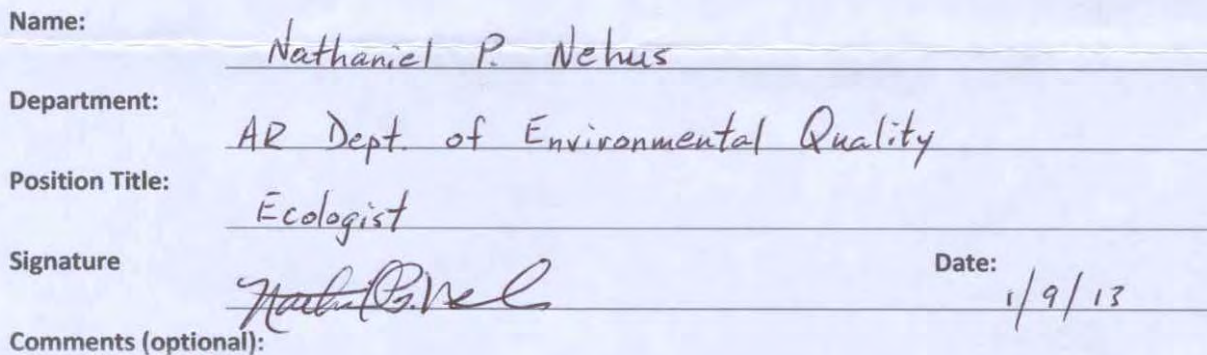 Name:
Nathaniel P. Nehus
Department:
AR Dept. of Environmental Quality
Position Title:
Ecologist
Signature
Date:
1/9/13
Comments (optional):